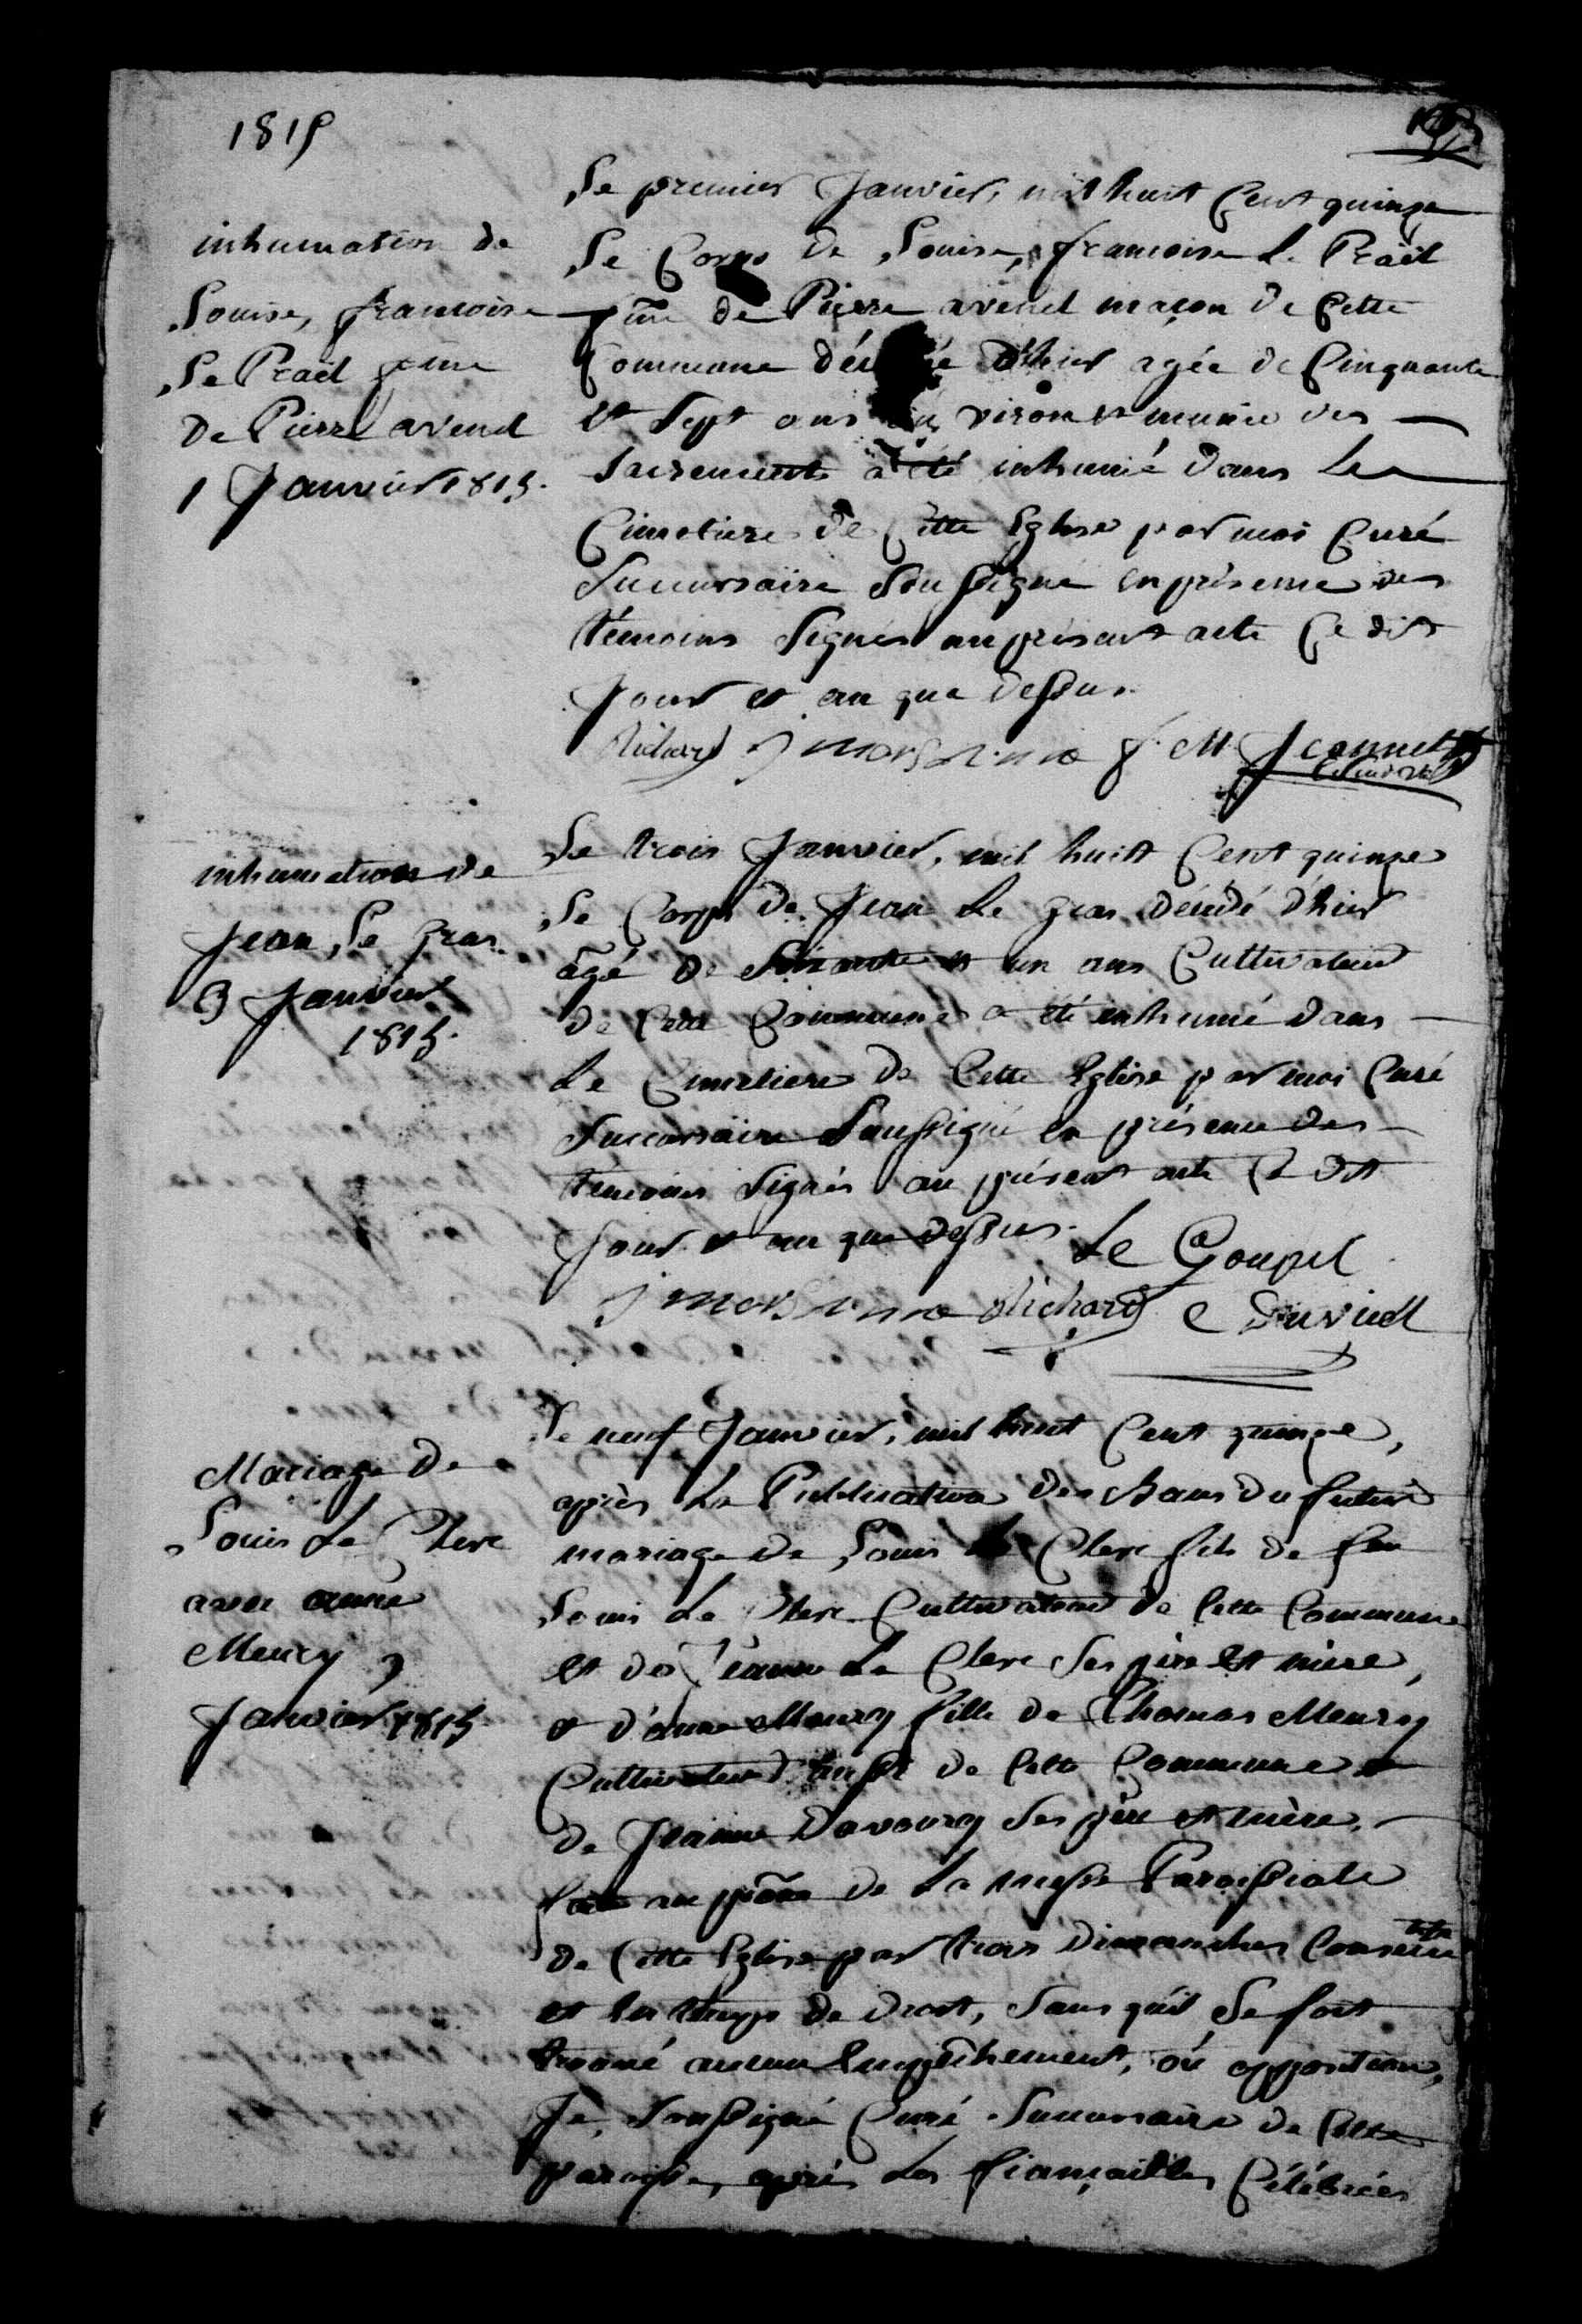 1815
inhumation de
Louise, francoise
Le Prail fême
de Pierre avenel
1 Janvier 1815.
Le premier Janvier, mil huit Cent quinze
Le Corps de Louise, francoise Le Prail
fême de Pierre avenel maçon de Cette
Commune d'hier agée de Cinquante
et Sept ans viron et munie des
sacrements a été inhumé dans Le
Cimetiere de Cette Eglise par moi Curé
Succursaire Soussigné en présence des
témoins Signés au présent acte Ce dit
Jour et an que dessus.
Richard J F. M. Jeannet
inhumation de
Jean Le gras
3 Janvier
1815.
Le trois Janvier, mil huit Cent quinze
Le Corps de Jean Le gras décédé d'hier
âgé de Soixante et un ans Cultivateur
de Cette Commune a été inhumé dans
Le Cimetiere de Cette Eglise par moi Curé
Succursaire Soussigné en présence des
temoins Signés au présent acte Ce dit
Jour et an que dessus. Le Goupil
J Richard
Mariage de
Louis Le Clerc
avec anne
Meury 9
Janvier 1815
Le neuf Janvier, mil huit Cent quinze,
après La Publication des Bans du futur
mariage de Louis Le Clerc fils de feu
Louis Le Clerc Cultivateur de Cette Commune
et de Jeanne Le Clerc Ses père et mère,
et d'anne Meury fille de Thomas Meury
Cultivateur aussi de Cette Commune et
de Jeanne Davoury Ses père et mère,
faite au prône de La messe Paroissiale
de Cette Eglise par trois Dimanches Consécutifs
et en temps de droit, Sans qu'il Se soit
trouvé aucun Empêchement, où opposition,
Je, Soussigné Curé Succursaire de Cette
paroisse, après Les fiançailles Célébrées